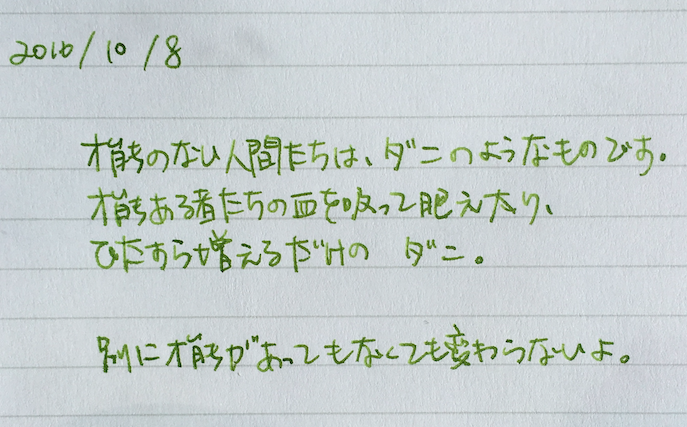 2016/10/8
才能のない人間たちは、ダニのようなものです。
才能ある者たちの血を吸って肥えたり、
ひたすら増えるだけの ダニ。
別に才能があってもなくても変わらないよ。